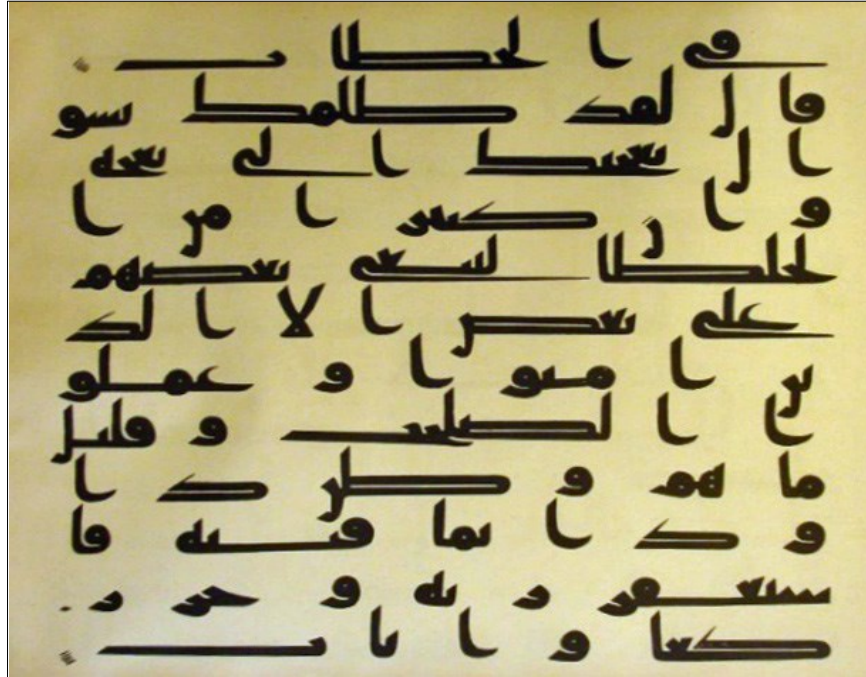 في الخطاب
قال لقد ظلمك بسو
ال نعجتك الى نعجه
وان كثيرا من ا
لخلطا ليبغى بعضهم
على بعض الا الذ
ين امنوا وعملو
ا الصلحت وقليل
ما هم وظن دا
ود انما فتنه فا
ستغفر ربه وخر ر
كعا واناب